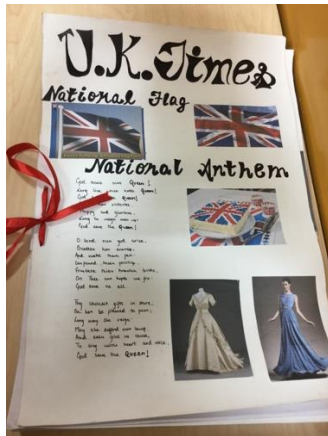 U.K. Times
National Flag
National Anthem
God save our Queen!
Long live our noble Queen!
God save the Queen!
Happy and glorious,
Long to reign over us:
God save the Queen!
O Lord, our god arise,
Scatter her enemies,
And make them fall:
Confound their politics,
Frustrate their knavish tricks,
On Thee our hopes we fix:
God save us all.
Thy choicest gifts in store,
On her be pleased to pour;
Long may she reign:
May she defend our laws,
And ever give us cause,
To sing with heart and voice,
God save the Queen!